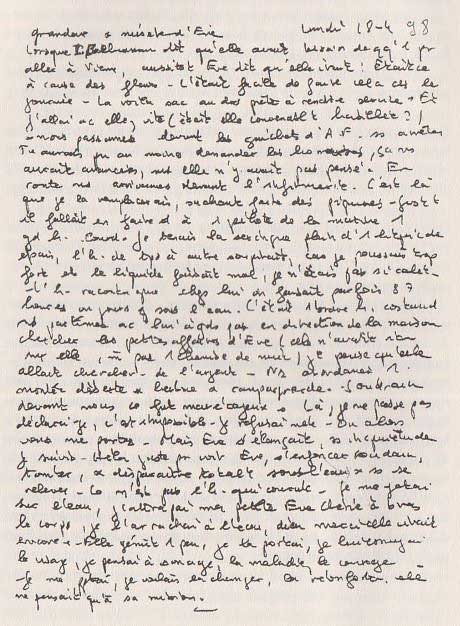 grandeur & misère d'Eve Lundi 18-4 98
Lorsque dit qu'elle avait besoin de qq'1 pr
aller à Vienne, aussitôt Eve dit qu'elle irait! Etait ce
à cause des fleurs - C'était facile de faire cela ds la
journée - La voilà sac au dos prête à rendre service - Et
j'allai ac elle, vite (était elle convenablt habillée?)
- nous passames devant les guichets d'A.F. ss arrêter
Tu aurais pu au moins demander les horaires, ça ns
aurait avancées, ms elle n'y avait pas pensé - En
route ns arrivames devant l'infirmerie. C'est là
que je la remplacerais, sachant faire des piqures - Just t
il fallait en faire 1 à 1 pilote de la marine 1
gd h. - Je tenais la seringue plein d'1 liquide
épais, l'h. de tps à autre soupirait, car je poussais trop
fort et le liquide faisait mal, je n'étais pas si calée -
- l'h. raconta que chez lui on faisait parfois 87
heures un jours sous l'eau. C'était 1 ordre
ns partimes ac lui à gds pas en direction de la maison
chercher les petites affaires d'Eve (cela n'avait rien
sur elle, m̂ pas 1 chemise de nuit) je pense qu'elle
allait chercher de l'argent - Ns abordames 1
montée déserte & herbue & campagnarde. Soudain
devant nous ce fut marécageux - Là, je ne passe pas
déclarai-je, c'est impossible - je refusai net - Ou alors
vous me portez - Mais Eve s'élançait, ss inquiétude
je suivis - Hélas juste pr voir Eve, s'enfoncer soudain,
tomber, & disparaître totalt sous l'eau & ss se
relever - Ce n'est pas l'h. qui courut - je me jetai
sur l'eau, j'attrapai ma petite Eve chérie à bras
le corps, je l'arrachai à l'eau, dieu merci elle vivait
encore - Elle gémit 1 peu, je la portai,
le visage, je pensai à son âge, la maladie, le courage -
- Je me , je voulais la changer, la réconforter, elle
ne pensait qu'à sa mission. -